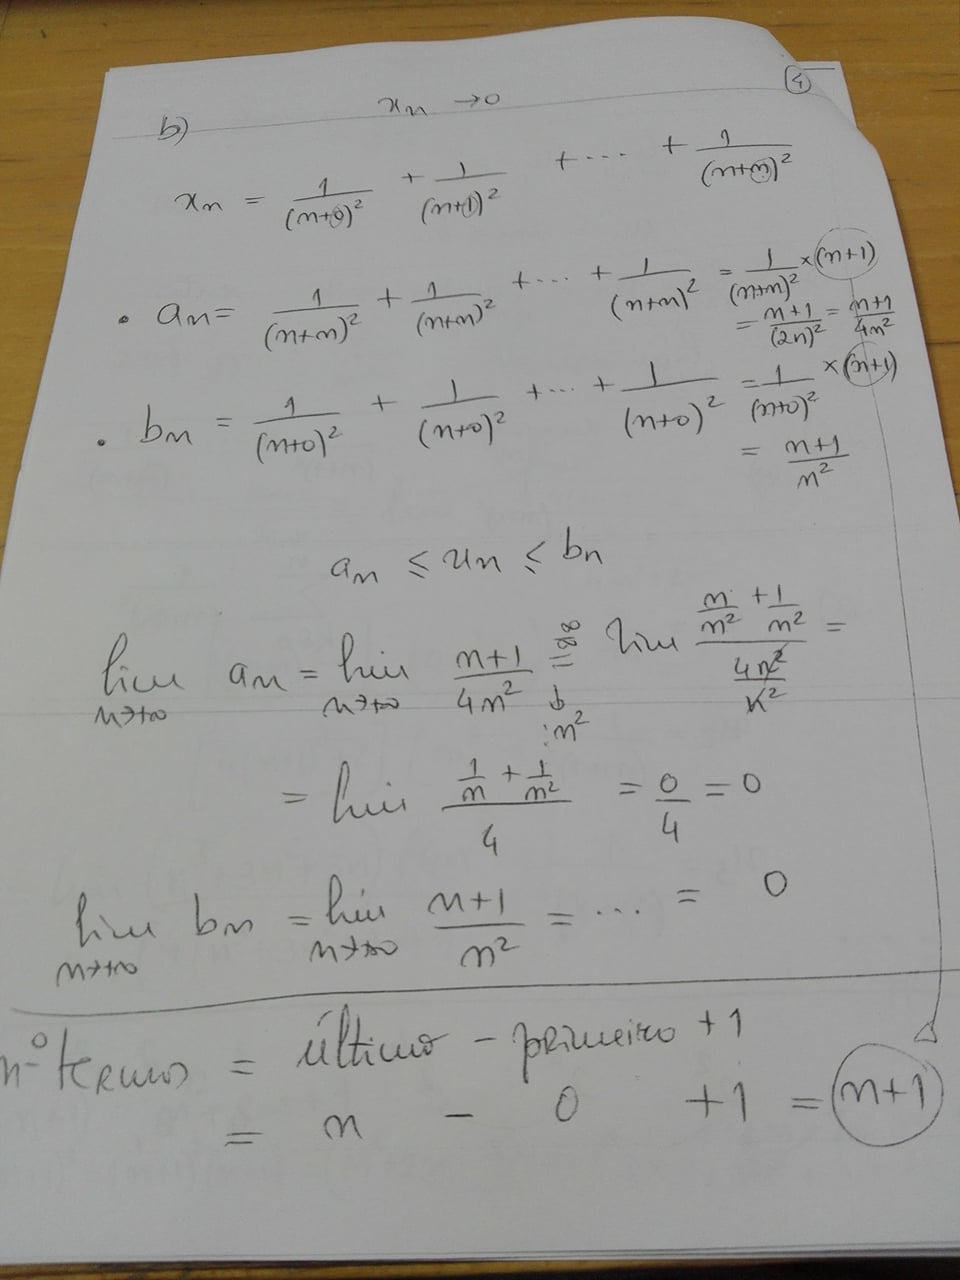 xn → 0
4
b)
xn = 1/(n+0)² + 1/(n+1)² + ... + 1/(n+n)²
• an = 1/(n+n)² + 1/(n+n)² + ... + 1/(n+n)² = 1/(n+n)² × (n+1)
= n+1/(2n)² = n+1/4n²
• bn = 1/(n+0)² + 1/(n+0)² + ... + 1/(n+0)² = 1/(n+0)² × (n+1)
= n+1/n²
an ≤ un ≤ bn
lim n→+∞ an = lim n→+∞ n+1/4n² = ∞/∞ ↓ :n² lim (n/n² + 1/n²)/(4n²/n²) =
= lim (1/n + 1/n²)/4 = 0/4 = 0
lim n→+∞ bn = lim n→+∞ n+1/n² = ... = 0
nº termos = último - primeiro + 1
= n - 0 + 1 = n+1